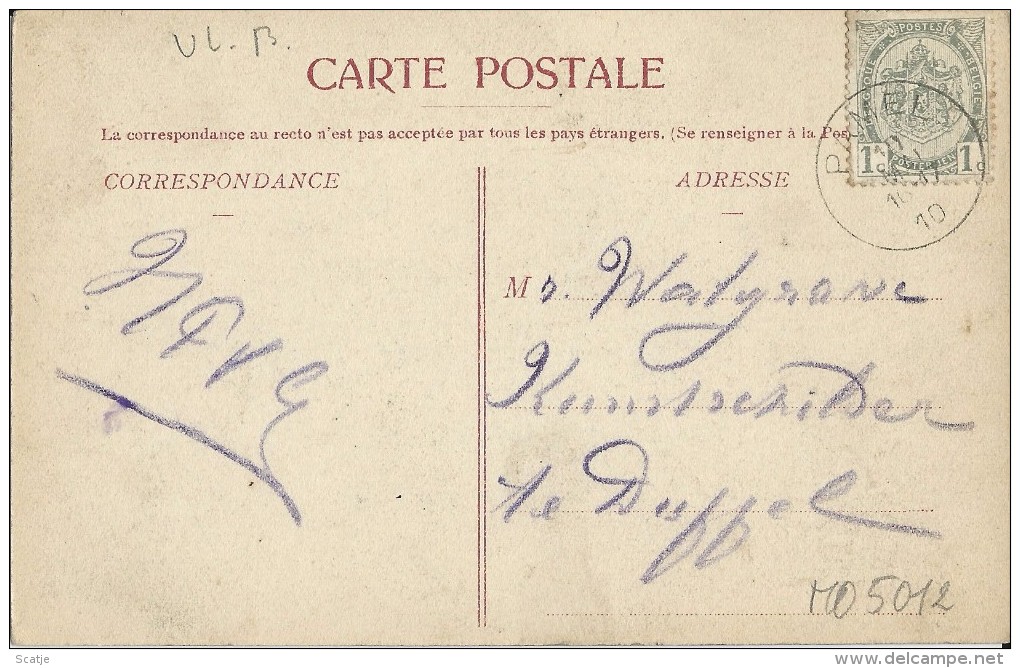 Vl. B.
CARTE POSTALE
La correspondance au recto n'est pas acceptée par tous les pays étrangers. (Se renseigner à la Pos
CORRESPONDANCE
ADRESSE
POSTES
BELGIQUE
1c 1c
PAMEL
10
Mr. Walgrave
Kunstschilder
te Duffel
MO 5012
Scatje
www.delcampe.net